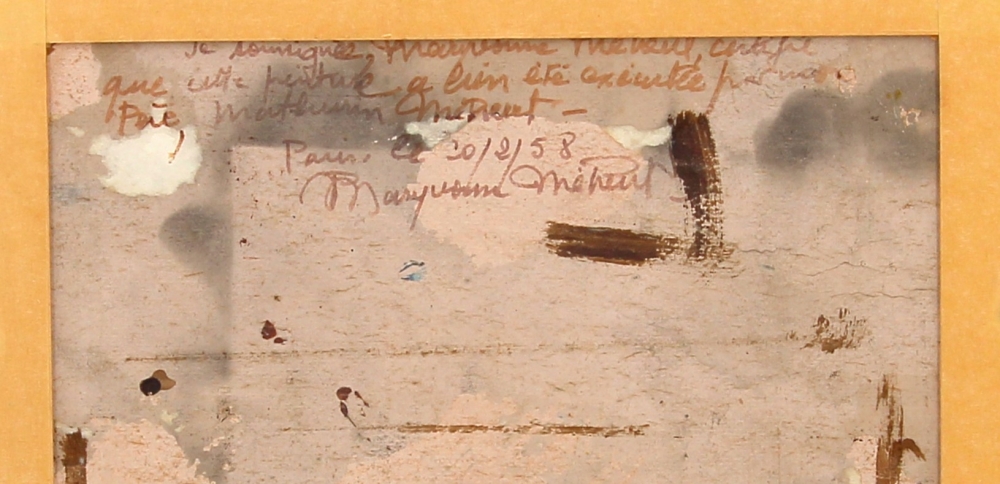 Je soussignée, Maryvonne Méheut, certifie
que cette peinture, a bien été exécutée par mon
Père Mathurin Méheut —
Paris. le 20/2/58
Maryvonne Méheut